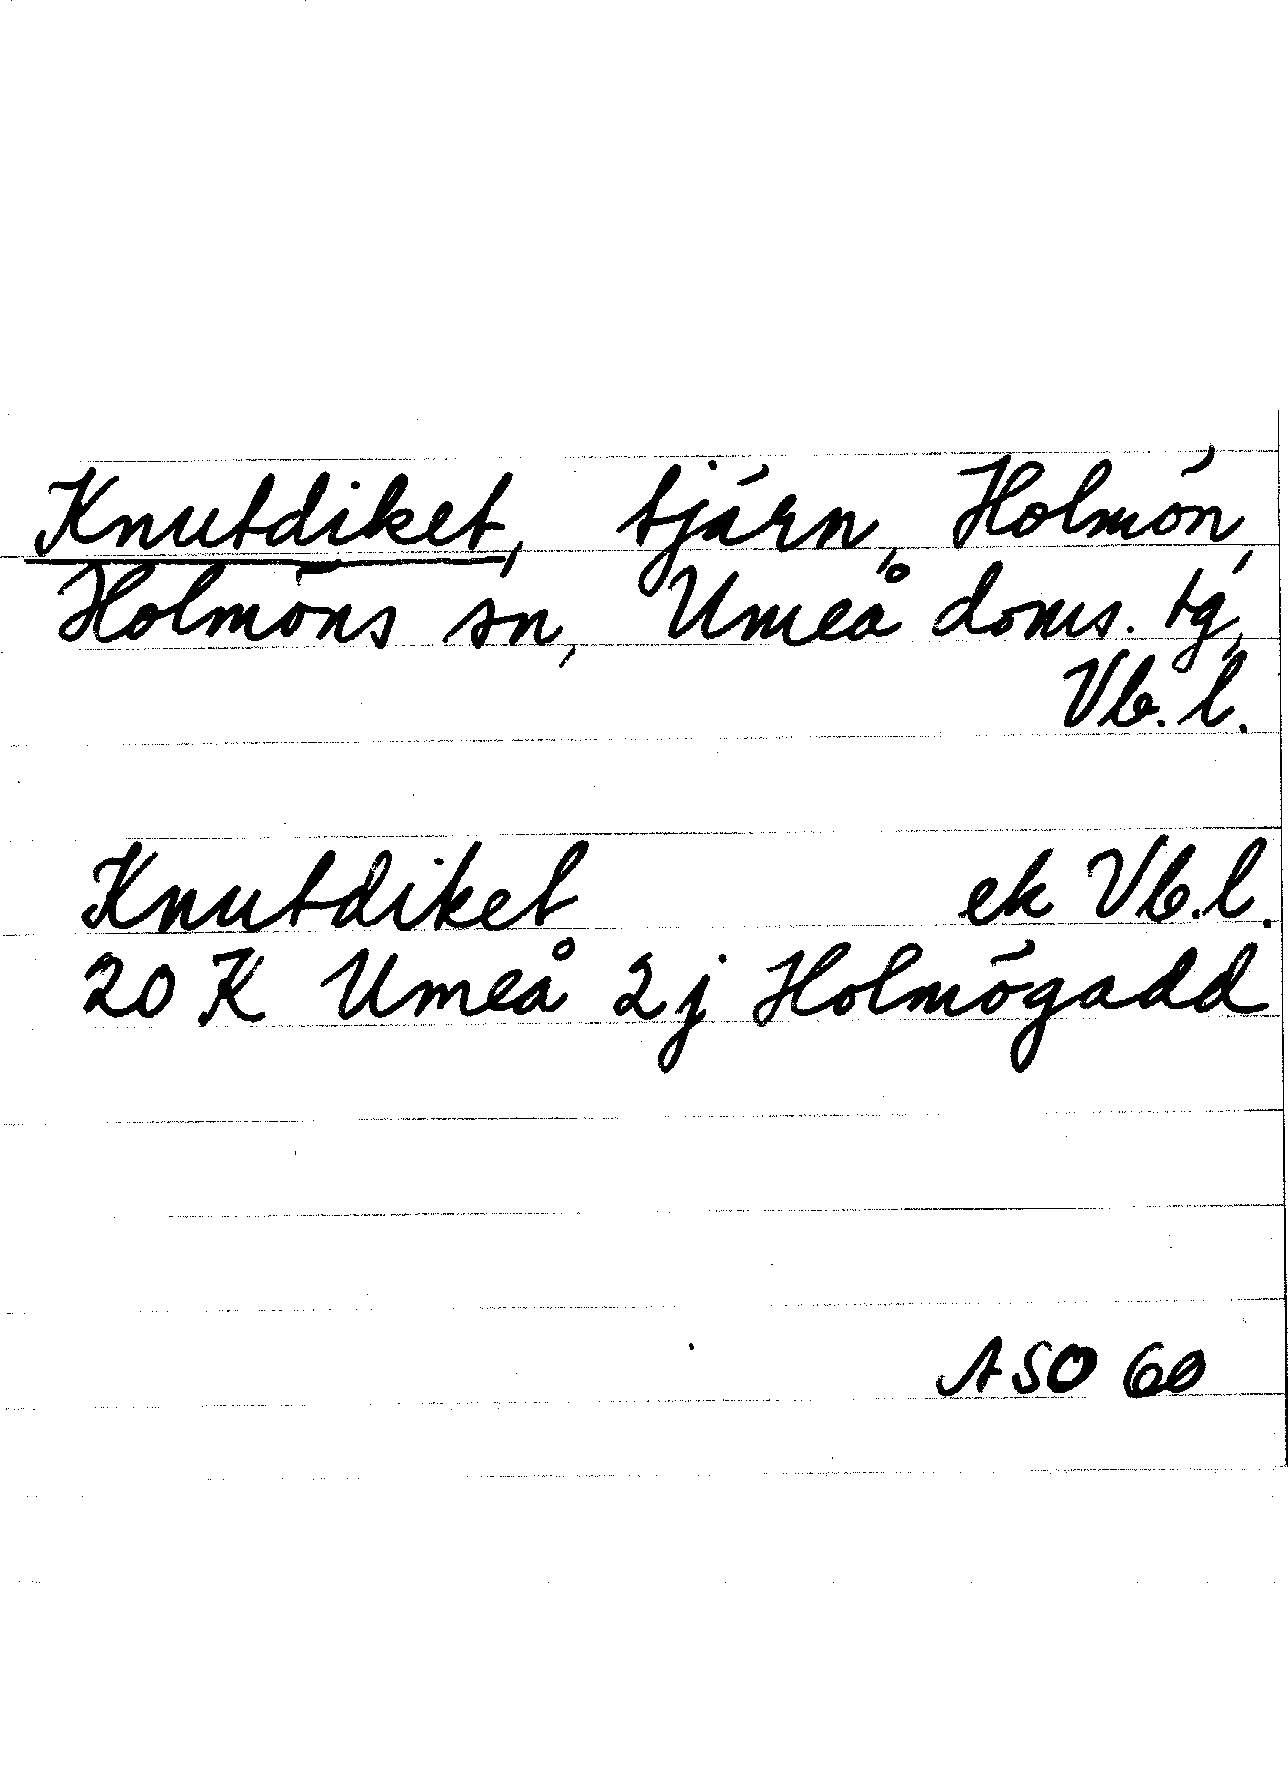 Knutdiket, tjärn, Holmön,
Holmöns sn, Umeå doms. tg,
Vb. l.
Knutdiket ek Vb. l.
20 K Umeå 2j Holmögadd
ASO 60